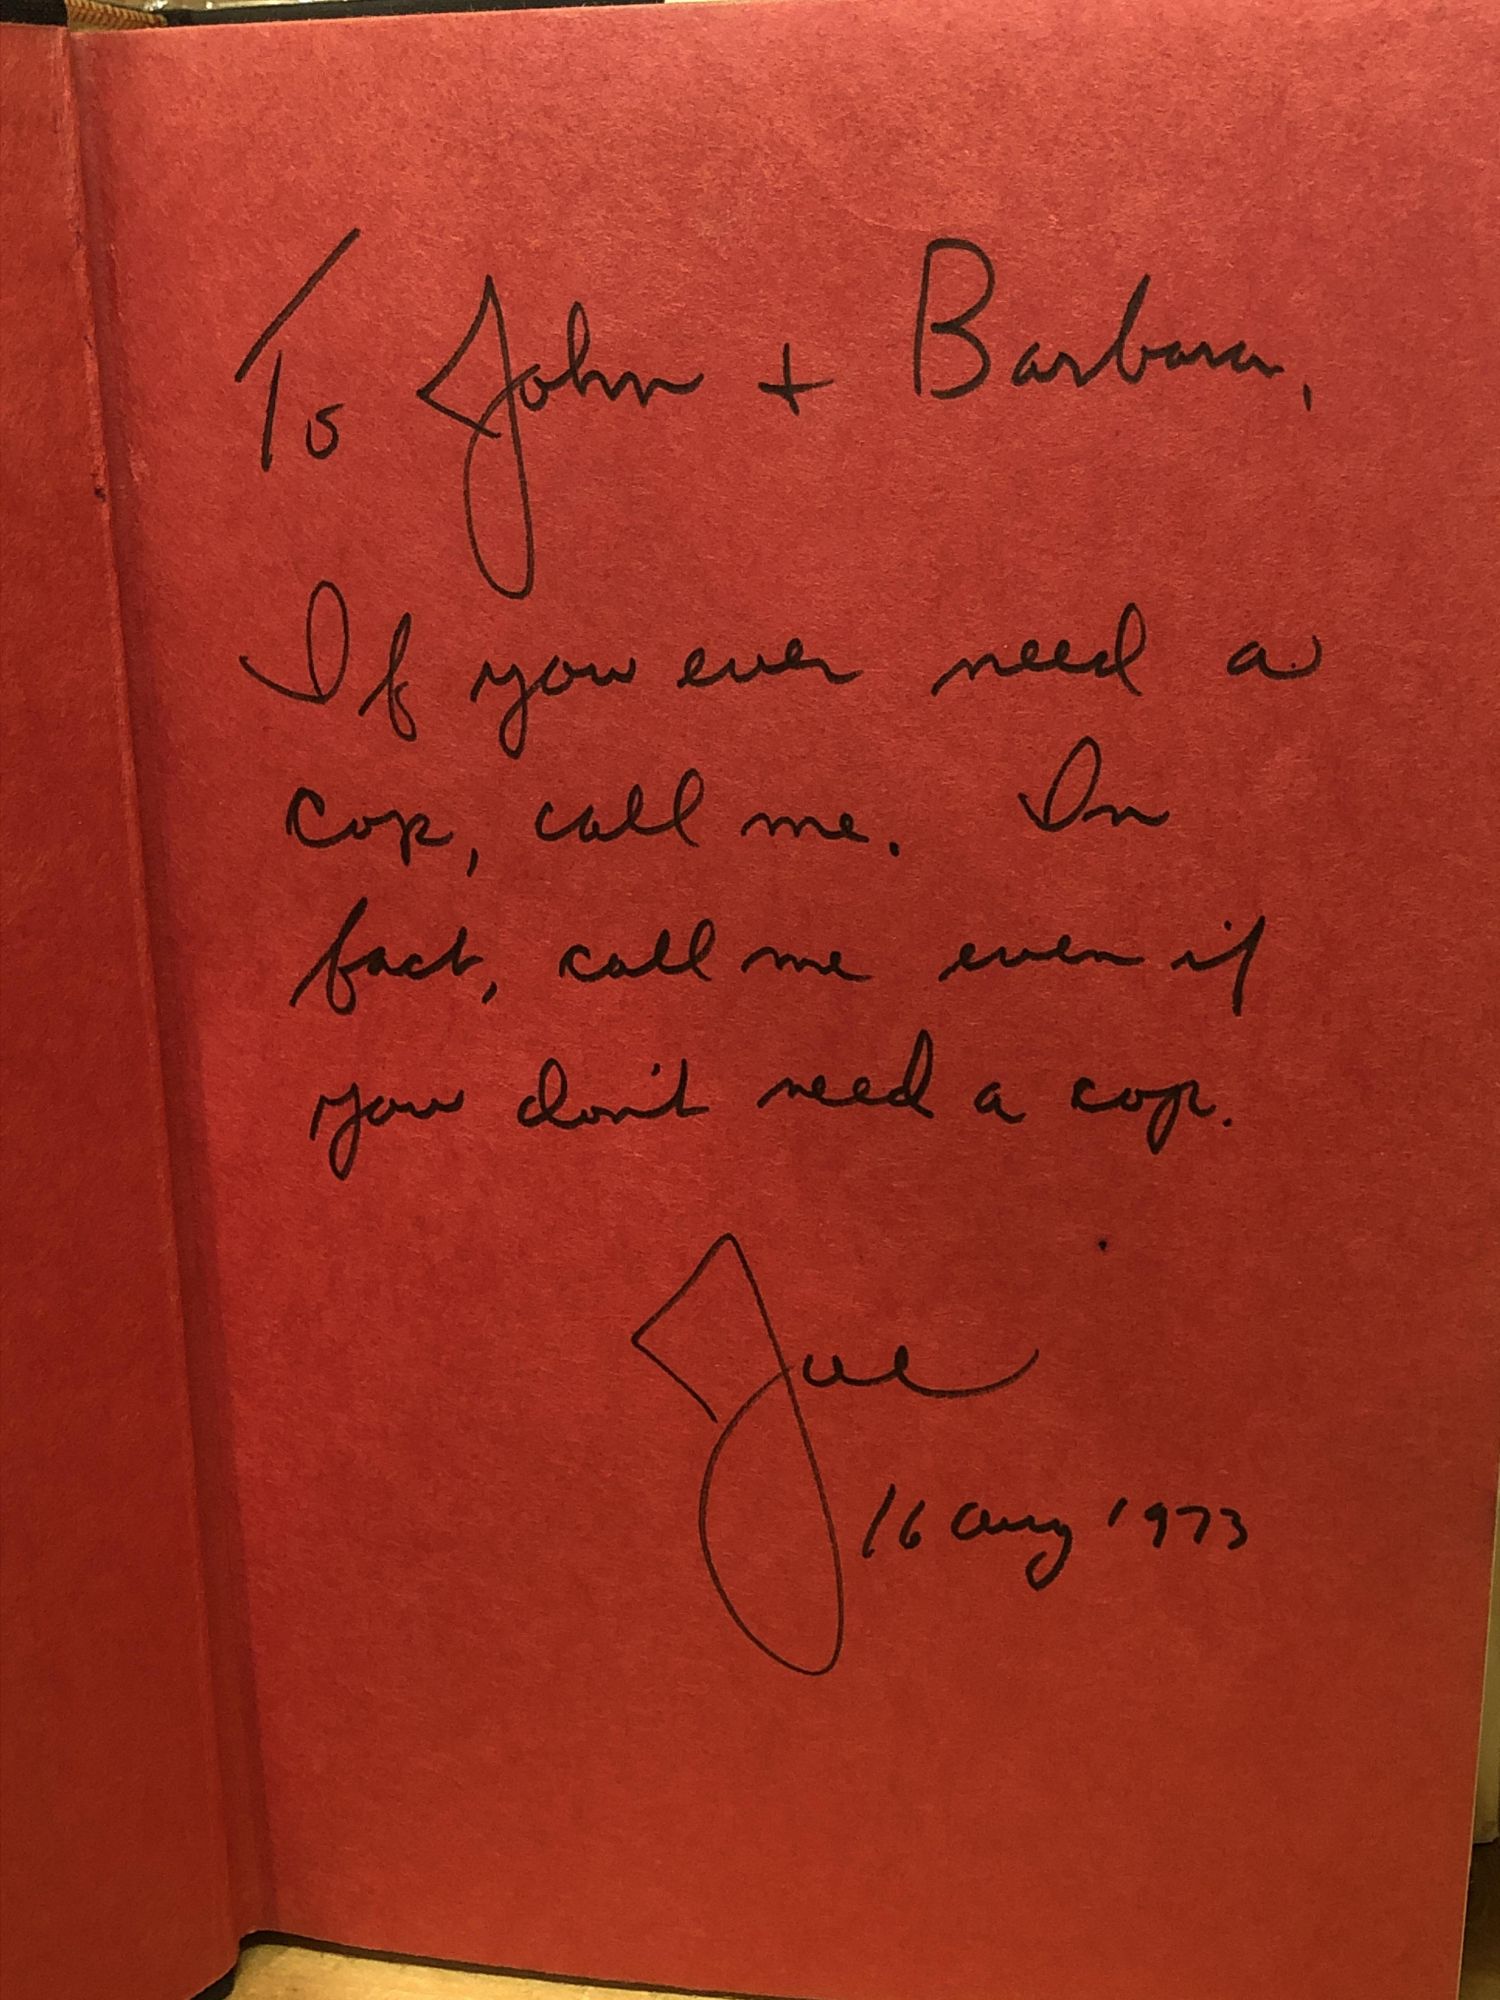 To John + Barbara,
If you ever need a
cop, call me. In
fact, call me even if
you don't need a cop.
Joe
16 Aug 1973